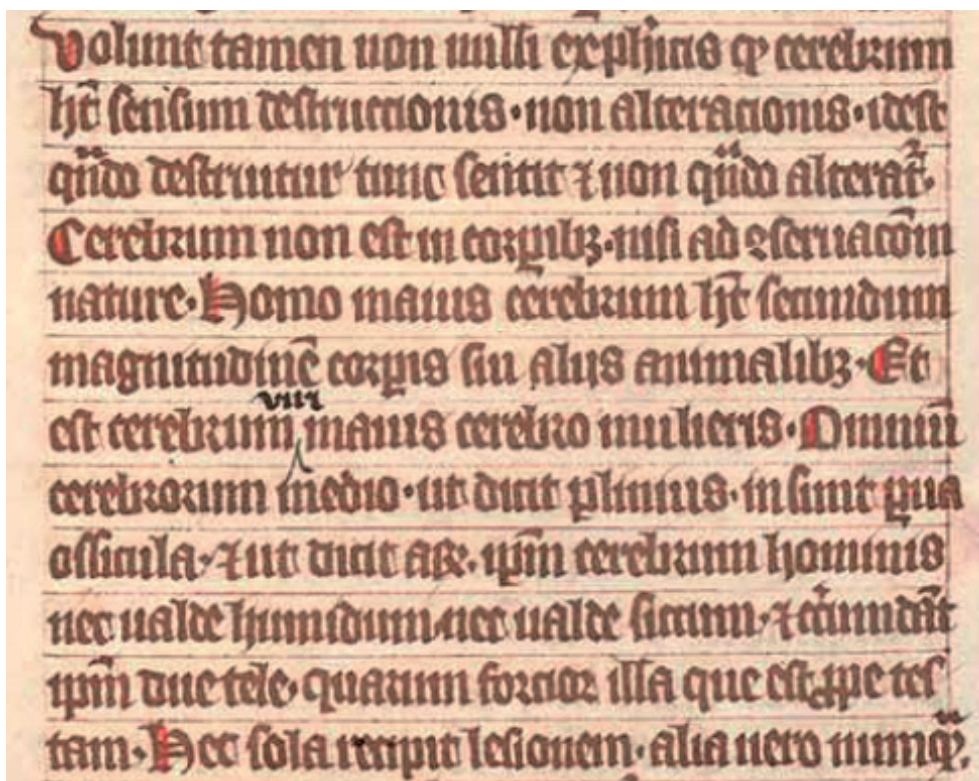 Volunt tamen non nulli ex ph̄icis qꝫ cerebrum
hꝫ̄t sensum destructionis · non alteracionis · idest
qn̄do destruitur tunc sentit ⁊ non qn̄do alterat᷑ ·
Cerebrum non est in corꝑibꝫ · nisi ad ꝯseruacōm
nature · Homo maius cerebrum hꝫ̄t secundum
magnitudinē corꝑis sui aliis animalibꝫ · Et
viri
est cerebrum maius cerebro mulieris · Omniū
cerebrorum medio · ut dicit plinius · insunt ꝑua
ossicula · ⁊ ut dicit ar̄ · ip̄m cerebrum hominis
nec ualde humidum · nec ualde siccum · ⁊ c̓cumdāt
ip̄m due tele · quarum forcior illa que est ꝓpe tes
tam · Hec sola recipit lesionem · alia uero numqꝫ ·